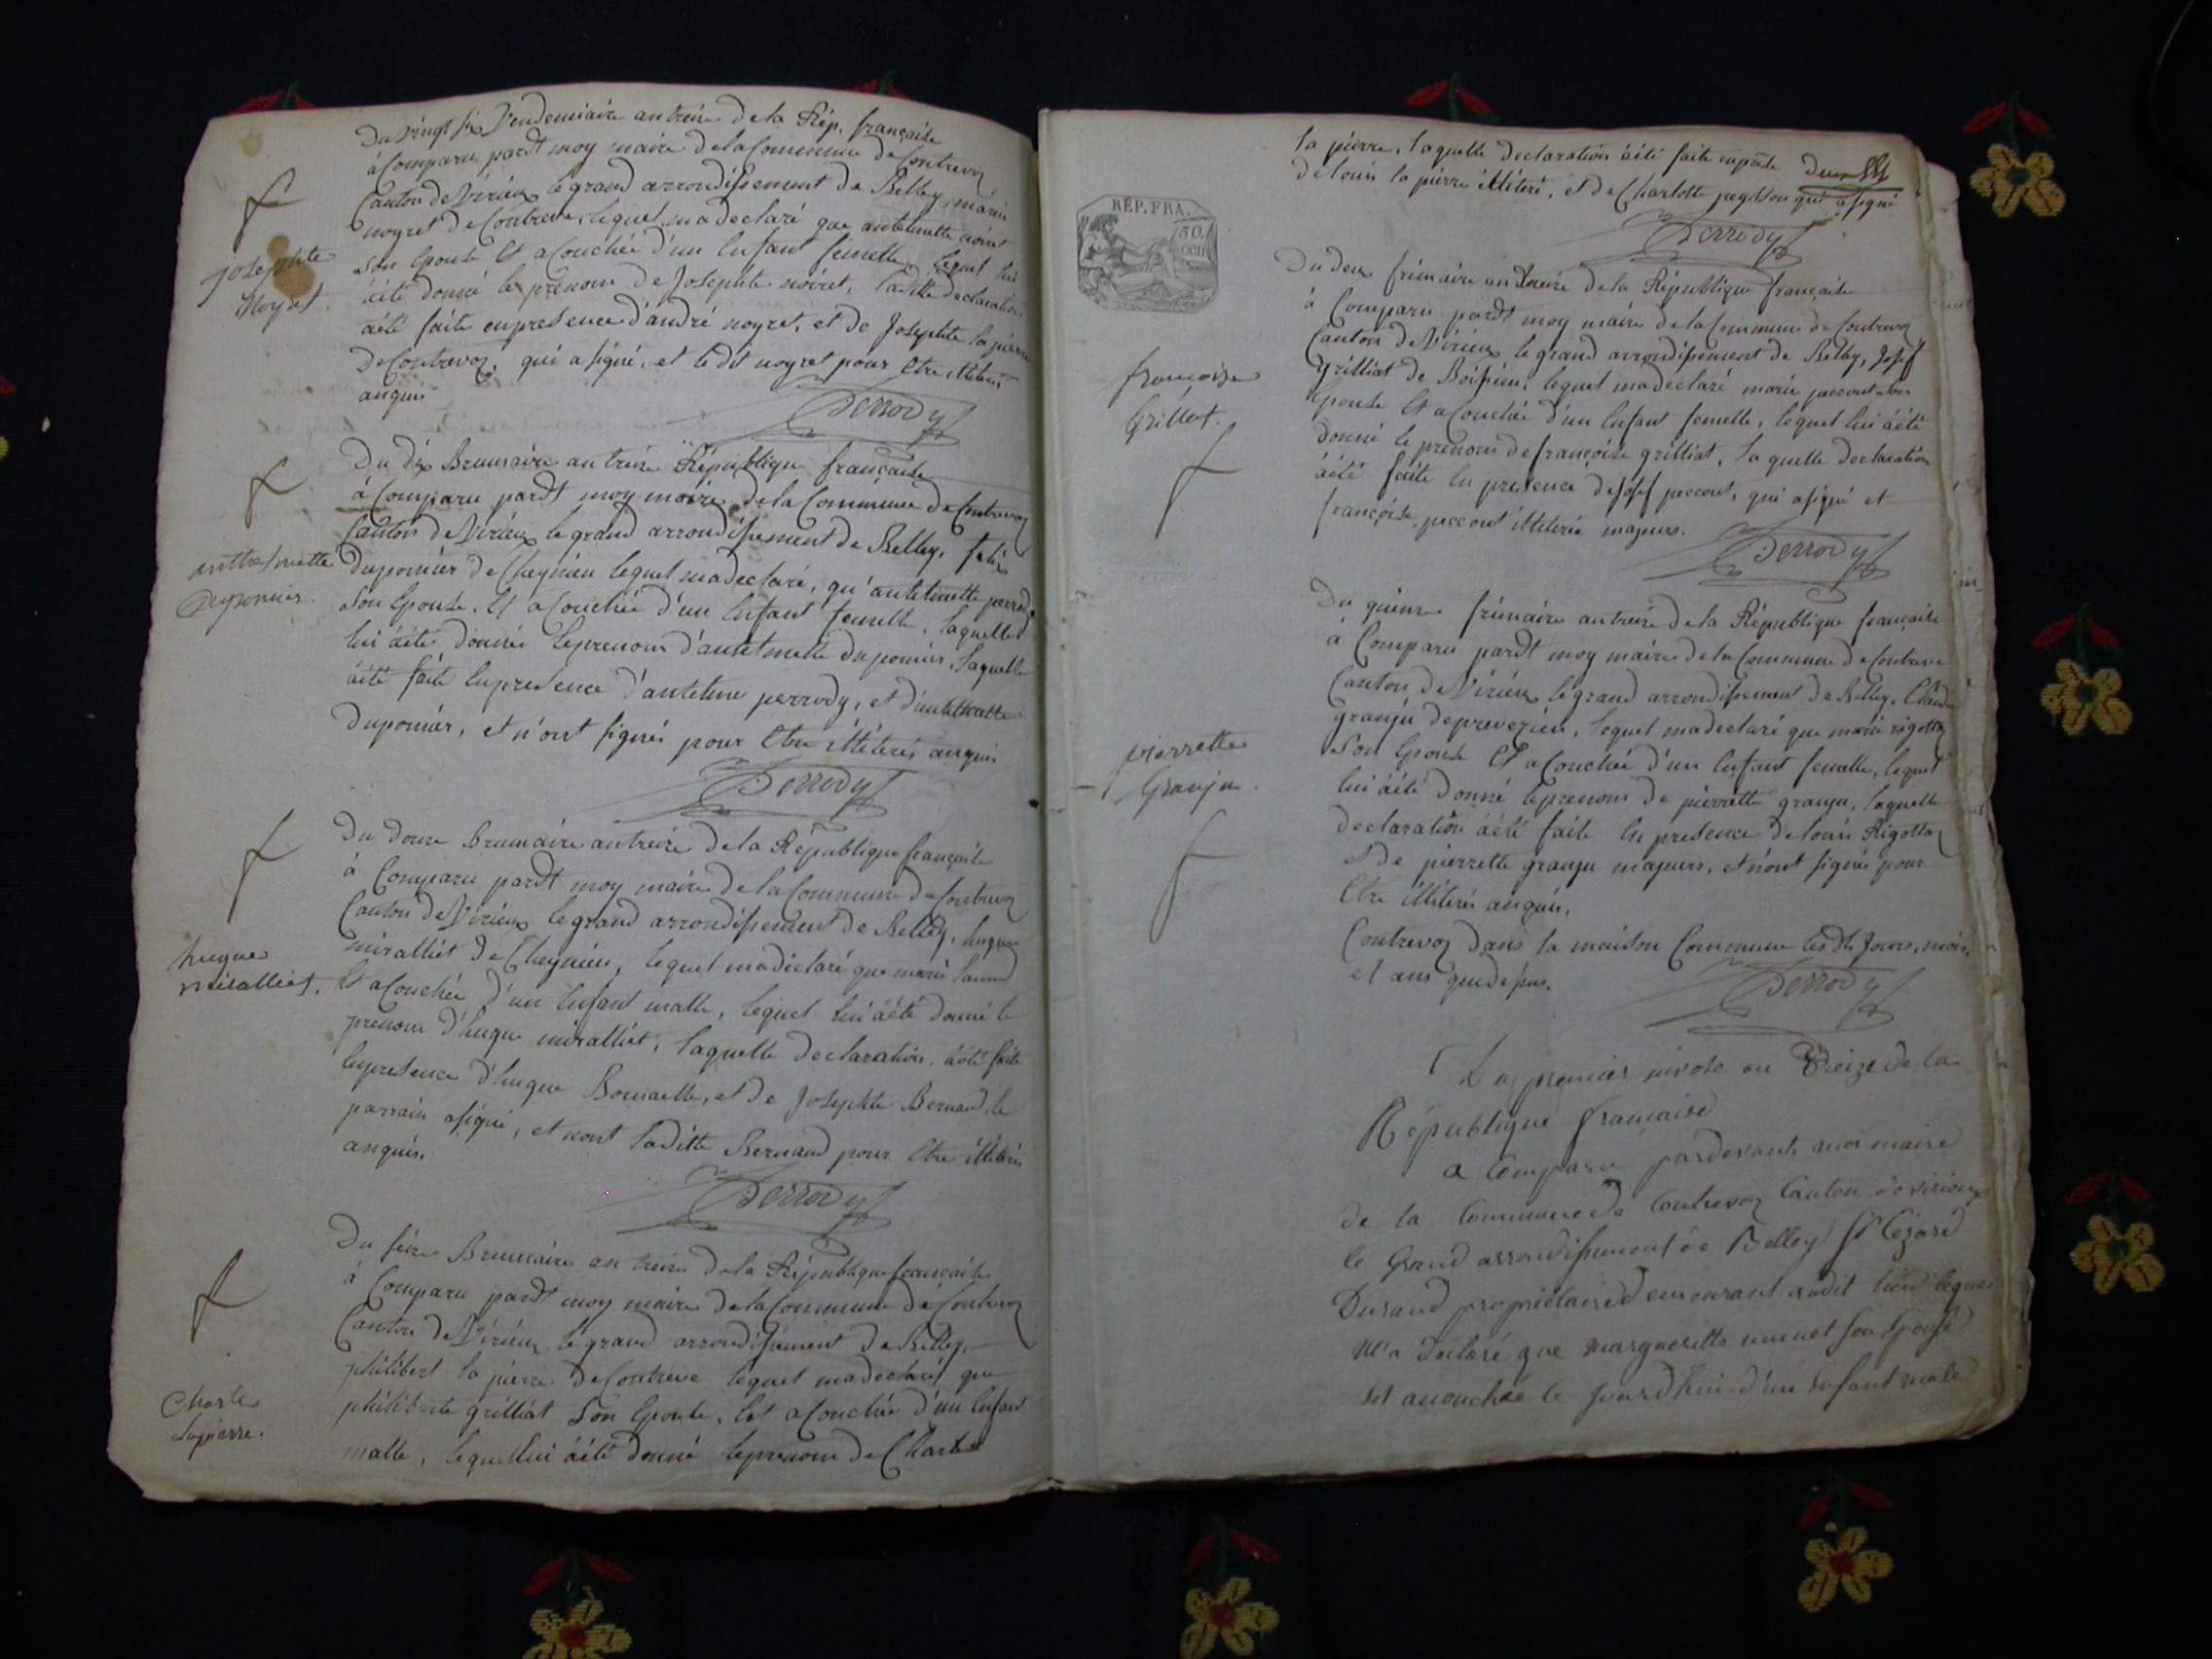 Du vingt six Vendemiaire an treize de la Rép. française
à Comparu pardt moy maire de la Commune de Contrevoz
Canton de Virieux le grand arrondissement de Belley, marin
noyret de Contreve, lequel ma declaré que antelmette noiret
son Epouse Et acouchée d'un Enfant femelle, lequel lui
àété donné le prénom de Josephte noiret, laditte declaration
àété faite en presence d'andré noyret, et de Josephte la pierre
de Contrevoz, qui a signé, et le dit noyret pour Etre illiteré
anquis
Josephte
Noyret.
Perrody
Du dix Brumaire an treize République française
à Comparu pardt moy maire de la Commune de Contrevoz
Canton de Virieux le grand arrondissement de Belley, felix
duponier de Cheynieu lequel ma declaré, qu'antelmette perrody
Son Epouse, Et acouchée d'un Enfant femelle, laquelle
lui àété donnée le prenom d'antelmette duponier, laquelle
àété faite En presence d'antelme perrody, et d'antelmette
duponier, et n'ont signés pour Etre illiterés anquis
anthelmette
duponier.
Perrody
Du douze brumaire an treize de la République française
à Comparu pardt moy maire de la Commune de Contrevoz
Canton de Virieux le grand arrondissement de Belley, hugue
miralliet de Cheynieu, lequel ma déclaré que marie
Et acouchée d'un Enfant malle, lequel lui àété donné le
prenom d'hugue miralliet, laquelle declaration àété faite
En presence d'hugue, et de Josephte Bernand, le
parrain a signé, et nont laditte Bernand pour Etre illiterés
anquis.
hugue
miralliet.
Perrody
Du seize Brumaire an treize de la République française
à Comparu pardt moy maire de la Commune de Contrevoz
Canton de Virieux le grand arrondissement de Belley,
philibert la pierre de Contreve lequel ma declaré que
philiberte grilliat Son Epouse, Est acouchée d'un Enfant
malle, lequel lui àété donné le prenom de Charles
Charle
Lapierre.
la pierre, laquelle declaration àété faite en presence
de louis la pierre illiteré, et de Charlotte peysson qui a signé
Perrody
RÉP. FRA.
50.
cen
Du deux frimaire an treize de la République française
à Comparu pardt moy maire de la Commune de Contrevoz
Canton de Virieux le grand arrondissement de Belley, Josef
Grilliat de Boissieu, lequel ma declaré marie peccout Son
Epouse Et acouchée d'un Enfant femelle, lequel lui àété
donné le prenom de françoise grilliat, laquelle declaration
àété faite En presence de Josef peccout, qui a signé et
françoise peccout illiterée majeurs.
françoise
Grillet.
Perrody
Du quinze frimaire an treize de la République française
à Comparu pardt moy maire de la Commune de Contreve
Canton de Virieux le grand arrondissement de Belley, Claude
granju de preverieu, lequel ma declaré que marie rigottaz
Son Epouse Et acouchée d'un Enfant femelle, lequel
lui àété donné le prenom de pierrette granju, laquelle
declaration àété faite En presence de louis Rigottaz
et de pierrette granju majeurs, et n'ont signés pour
Etre illiterés anquis.
Contrevoz dans la maison Commune les dts Jours, mois,
et ans que depus.
pierrette
Granju.
Perrody
Du premier nivose an treize de la
République française
a comparu pardevant moi maire
de la Commune de Contrevoz Canton de virieux
le Grand arrondissement de Belley Sr Cézard
Durand propriétaire demeurant audit lieu lequel
m'a déclaré que marguerite son Epouse
est acouchée le jourdhui d'un Enfant male